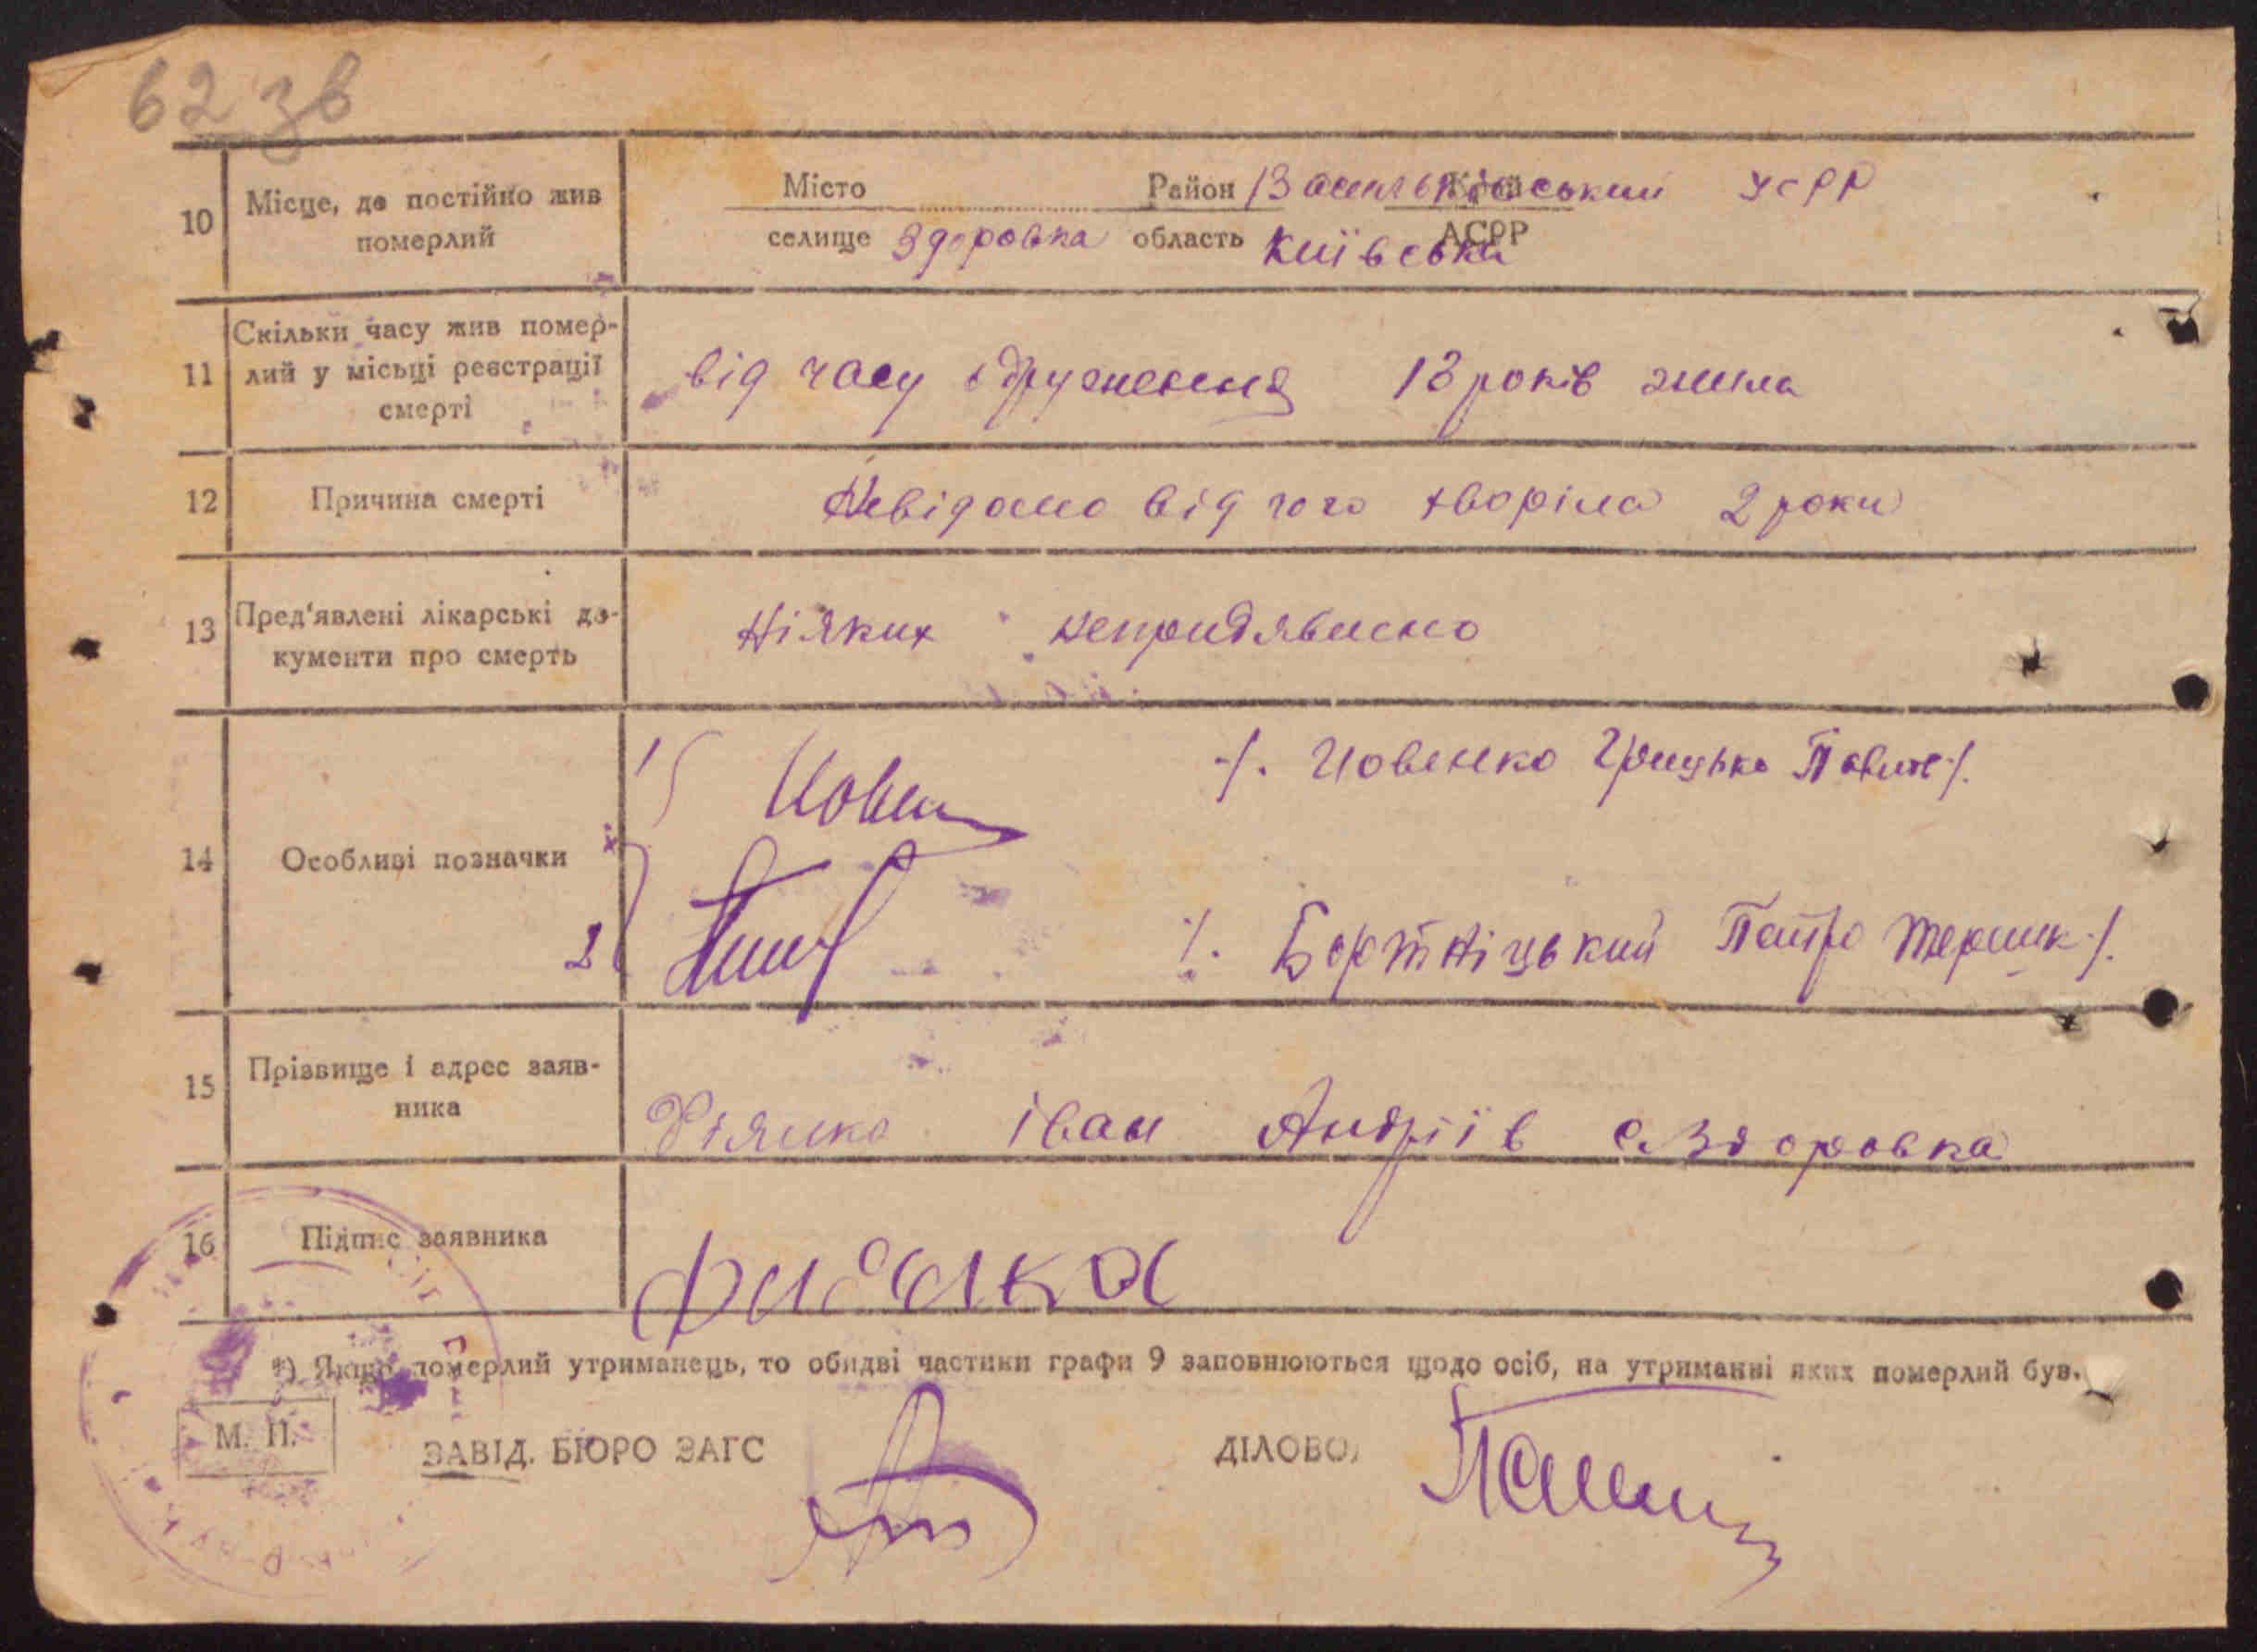 62 зв
10
Місце, де постійно жив
померлий
Місто Район Васильківський УСРР
селище Здоровка область Київська АСРР
11
Скільки часу жив помер-
лий у місьці реєстрації
смерті
від часу одруження 13 років жила
12
Причина смерті
Невідомо від чого хворіла 2 роки
13
Пред'явлені лікарські до-
кументи про смерть
Ніяких непридявлено
14
Особливі позначки
1)
/. Йовенко Грицько /.
2)
/. Бортніцький Петро /.
15
Прізвище і адрес заяв-
ника
Іван Андріїв с. Здоровка
16
Підпис заявника
*) Якщо померлий утриманець, то обидві частини графи 9 заповнюються щодо осіб, на утриманні яких померлий був.
М. П.
ЗАВІД. БЮРО ЗАГС
ДІЛОВОД